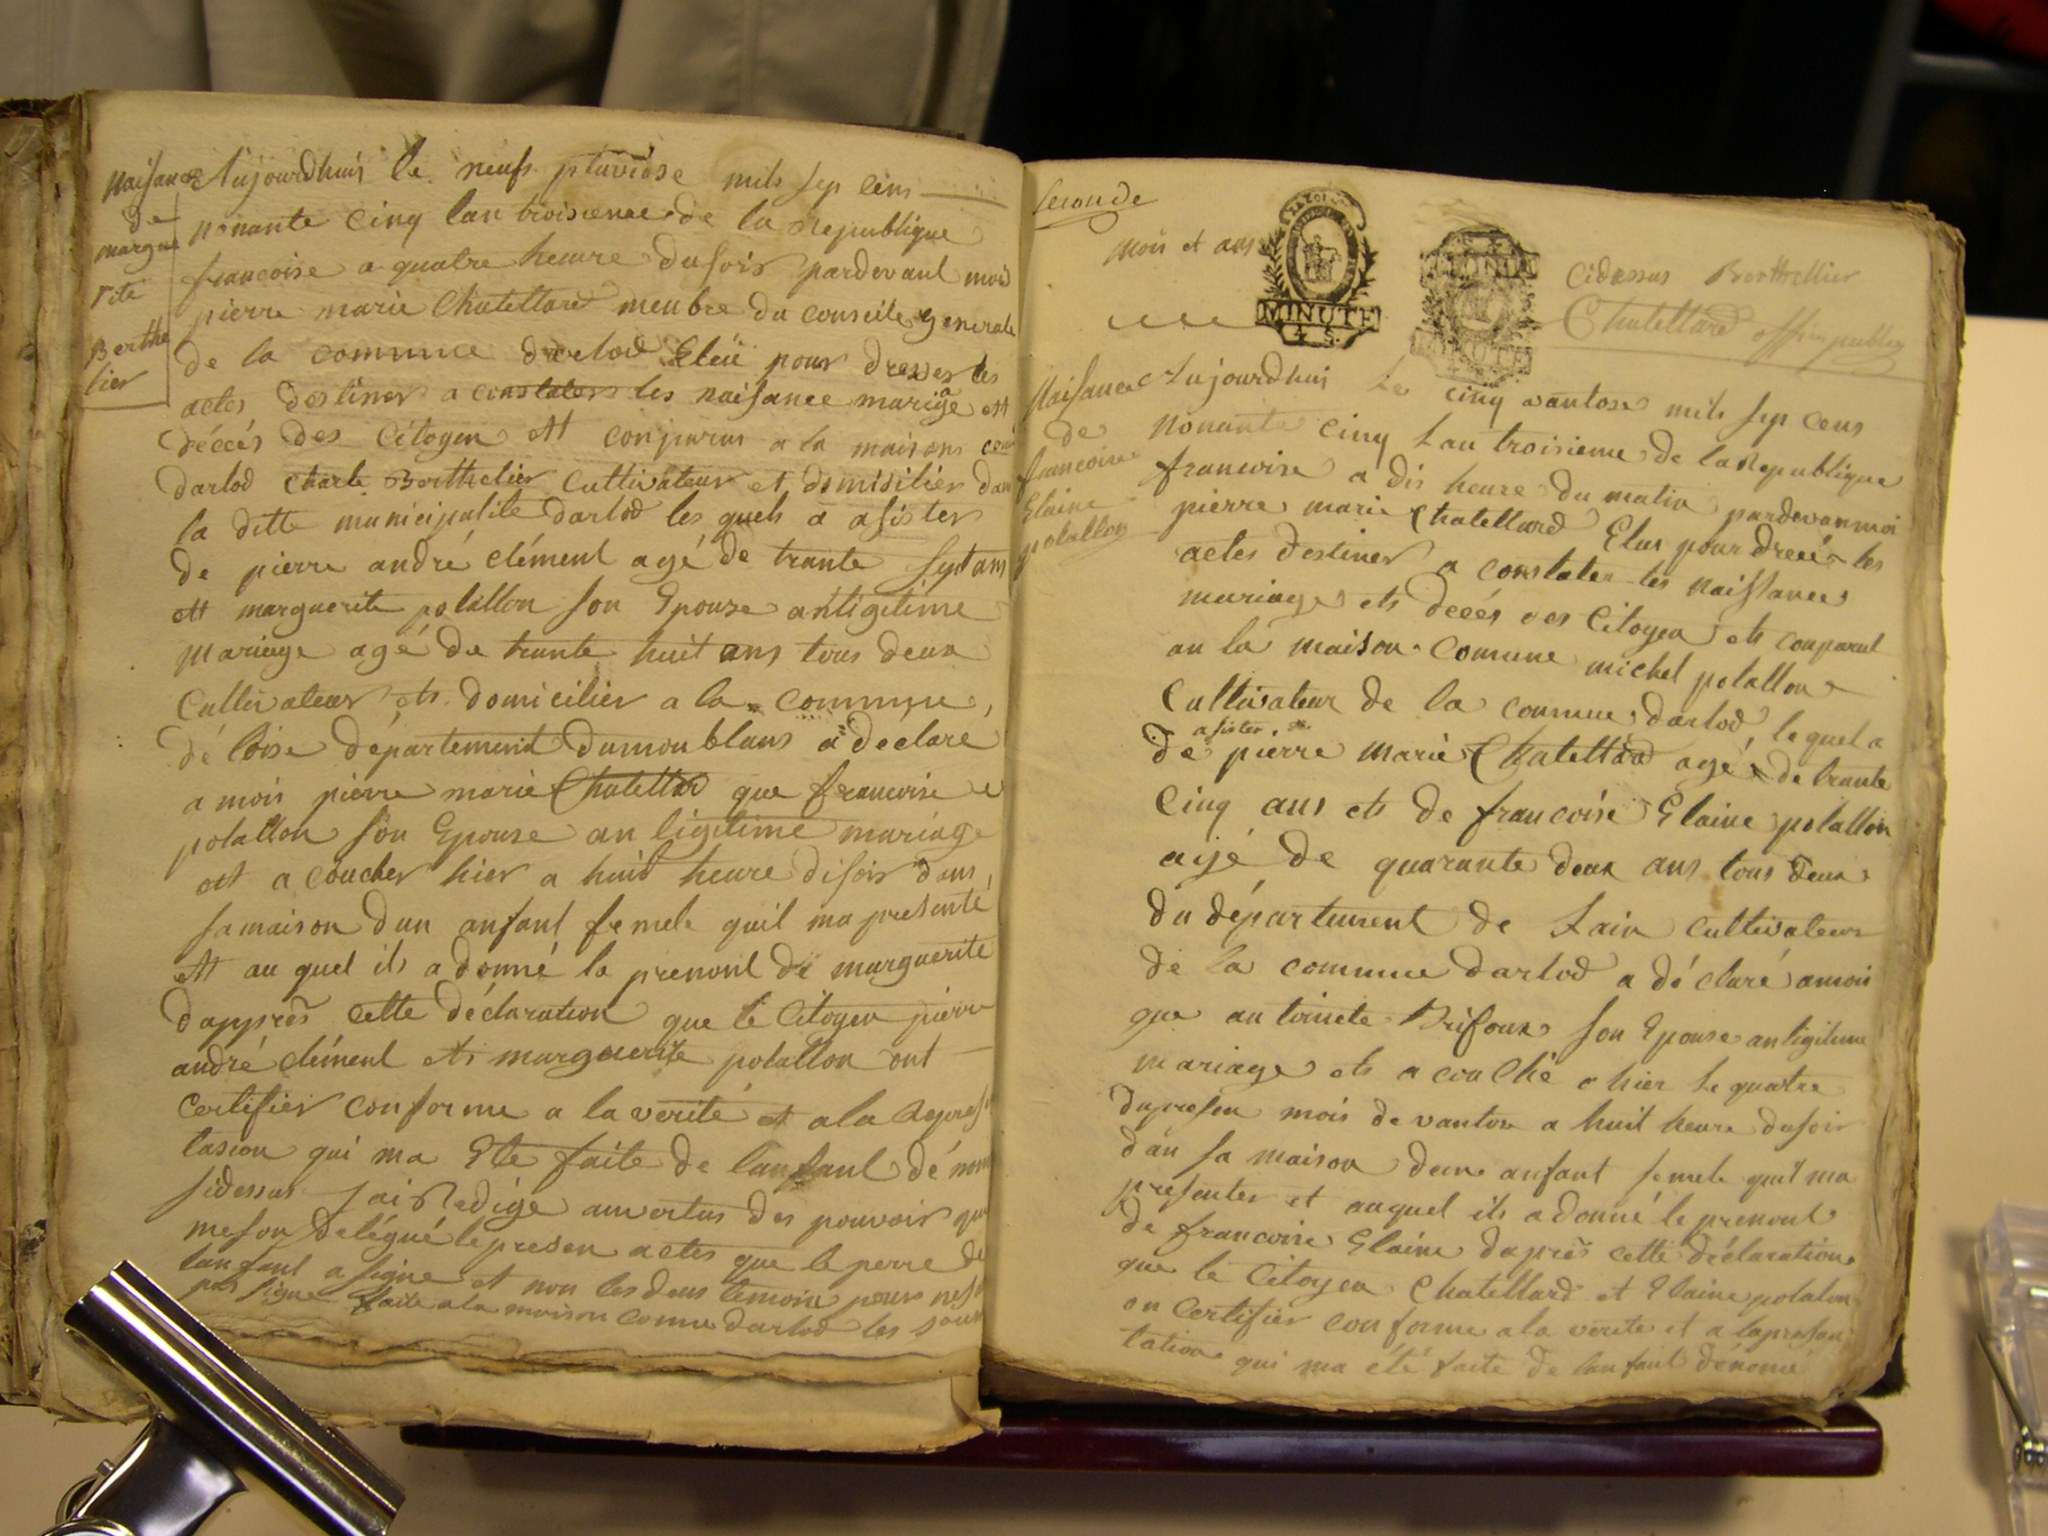 Naisance
de
margue
rite
Berthe
lier
Aujourdhuis le neufs pluviose mils sep cens
nonante cinq lan troisieme de la Republique
francoise a quatre heure dusoir pardevant mois
pierre marie Chatellard menbre du conseile generale
de la commune darlod Eleü pour dresser les
actes destiner a constater les naisance mariage ett
décés des Citoyen ett conparus a la maisons com
darlod Charle Berthelier Cultivateur et domisilier dan
la ditte municipalite darlod les quels a asister
de pierre andré clément agé de trante sept ans
ett marguerite polallon son Epouze antigitime
mariage agé de trante huit ans tous deux
Cultivateur ets domicilier a la commune,
dé loise département dumoublans a declare
a mois pierre marie Chatellard que francoise
polallon son Epouse an ligitime mariage
ett a coucher hier a huit heure disoir dans,
sa maison dun anfant femele quil ma presenté
ett au quel ils a donné le prenont dë marguerite
dapprès cette déclaration que le Citoyen pierre
andré clément ets marguerite polallon ont
certifier conforme a la verité et a la Represen
tasion qui ma Ete faite de lanfant dé nom
sidessus jai Redige anvertus des pouvoir qui
meson delégué le presen actes que le perre de
lanfant a signe et non les deus temoin pour nesa
pas signe faite a la maison comu darlod les jour
seconde
mois et ans
MINUTE
4 S.
MINUTE
Cidessus Berthellier
Chatellard offi publiq
Naisance
de
francoise
Elaine
polallon
Aujourdhui Le cinq vantose mils sep cens
nonante cinq Lan troisieme de la Republique
francoise a dis heure du matin pardevanmoi
pierre marie Chatellard Elus pour dreser les
actes destiner a constater les naissances
mariage ets décés des Citoyen ets conparut
an la maison comune michel polallon
Cultivateur de la commune darlod, le quel a
asister
de pierre marie Chatellard agé de trante
Cinq ans ets de francoise Elaine polallon
agé de quarante deux ans tous deux
du département de Lain cultivateur
de la commune darlod a déclaré a moi
que antoinete Brifoux son Epouse antigitime
mariage ets a couché hier le quatre
dupresen mois de vantose a huit heure dusoir
dan sa maison dune anfant femele quil ma
presenter et auquel ils a donné le prenont
de francoise Elaine daprès cette déclaration
que le Citoyen Chatellard et Elaine polalon
on certifier conforme a la verite et a lapresen
tation qui ma été faite de lanfant dénomé